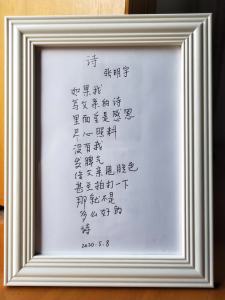 诗
张明宇
如果我
写父亲的诗
里面总是感恩
尽心照料
没有我
发脾气
给父亲甩脸色
甚至拍打一下
那就不是
多么好的
诗
2020.5.8